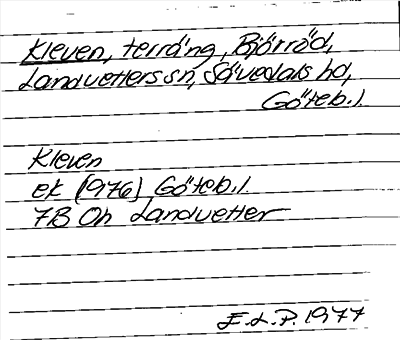 Kleven, terräng, Björröd,
Landvetters sn, Sävedals hd,
Göteb.l
Kleven
ek (1976) Göteb.l
7B Oh Landvetter
E.L.P. 1977